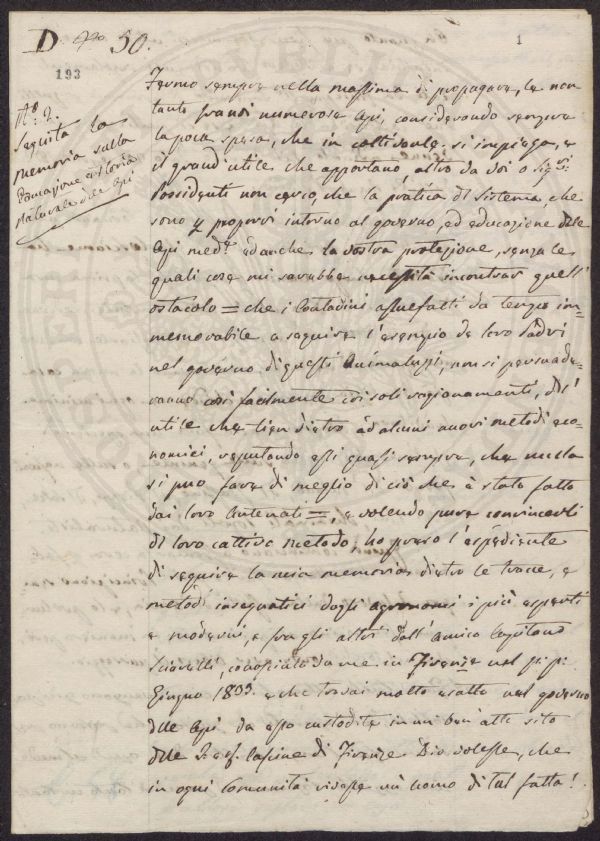 D. 50.
1
193
N.º 2.
Seguita la
memoria sulla
Educazione e storia
naturale delle Api
Fermo sempre nella massima di propagare, le non
tanto grandi numerose Api, considerando sempre
la poca spesa, che in coltivarle si impiega, e
il grand'utile che apportano, altro da voi o Sig.ri
Possidenti non cerco, che la pratica di sistema, che
sono p proporvi intorno al governo, ed educazione delle
Api med.e ed anche la vostra protezione, senza le
quali cose mi sarebbe necessità incontrar quell'
ostacolo = che i Contadini assuefatti da tempo im-
memorabile a seguire l'esempio de loro Padri
nel governo di questi Animaluzzi, non si persuade-
ranno così facilmente coi soli ragionamenti, dell'
utile che tien dietro ad alcuni nuovi metodi eco-
nomici, reputando essi quasi sempre, che nulla
si può fare di meglio di ciò che è stato fatto
dai loro Antenati =, e volendo pure convincerli
di loro cattivo metodo, ho preso l'espediente
di seguire la mia memoria dietro le tracce, e
metodi insegnatici dagli agronomi i più esperti
e moderni, e fra gli altri dall'amico Capitano
conosciuto da me in Firenze nel p. p.
Giugno 1833. e che trovai molto esatto nel governo
delle Api da esso custodite in un ben atto sito
delle Cascine di Firenze. Dio volesse, che
in ogni Comunità vivesse un uomo di tal fatta!